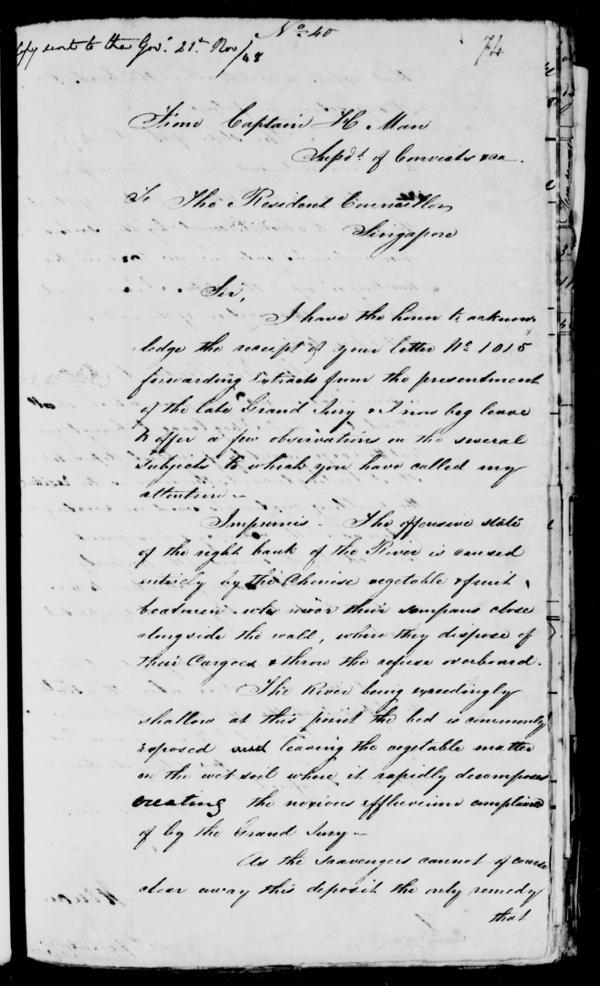 No. 40
Copy sent to the Govr. 21st Nov/48
74
From Captain H Man
Supdt. of Convicts &ca.
To The Resident Councillor
Singapore
Sir,
I have the honor to acknow-
ledge the receipt of your letter No. 1015
forwarding Extracts from the presentment
of the late Grand Jury & I now beg leave
to offer a few observations on the several
Subjects to which you have called my
attention -
Imprimis. The offensive state
of the right bank of the River is caused
entirely by the Chinese vegetable & fruit
boatmen who moor their sampans close
alongside the wall, where they dispose of
their Cargoes & throw the refuse overboard.
The River being exceedingly
shallow at this point the bed is commonly
exposed leaving the vegetable matter
on the wet soil where it rapidly decomposes
creating the noxious effluvium complained
of by the Grand Jury -
As the scavengers cannot of course
clear away this deposit the only remedy
that